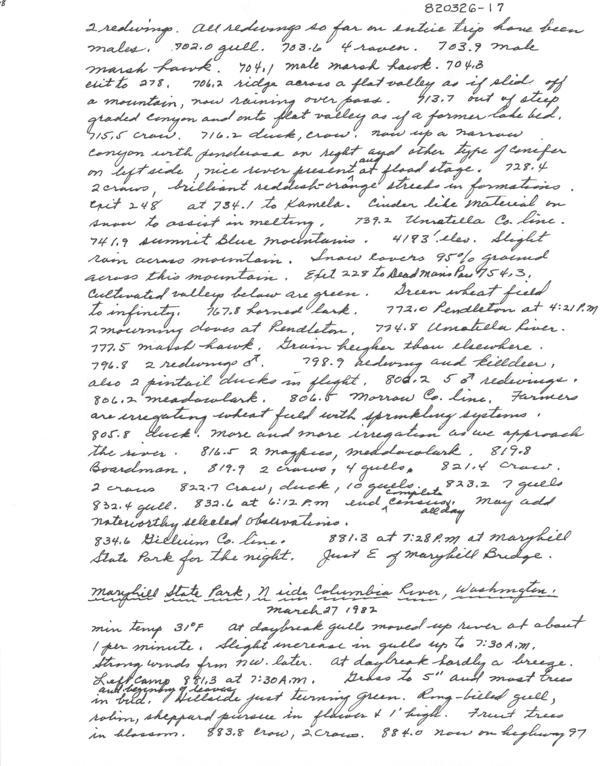 820326-17
2 redwings. All redwings so far on entire trip have been
males. 702.0 gull. 703.6 4 raven. 703.9 male
marsh hawk. 704.1 male marsh hawk. 704.3
exit to 278. 706.2 ridge across a flat valley as if slid off
a mountain, now raining over pass. 713.7 out of steep
graded canyon and onto flat valley as if a former lake bed.
715.5 crow. 716.2 duck, crow. now up a narrow
canyon with ponderosa on right and other type of conifer
on left side, nice river present and at flood stage. 728.4
2 crows, brilliant reddish-orange streaks in formations.
Exit 248 at 734.1 to Kamela. Cinder like material on
snow to assist in melting. 739.2 Umatilla Co. line.
741.9 summit Blue Mountains. 4193' elev. Slight
rain across mountain. Snow covers 95% ground
across this mountain. Exit 228 to Deadmans Pass 754.3.
Cultivated valleys below are green. Green wheat field
to infinity. 767.8 horned lark. 772.0 Pendleton at 4:21 P.M
2 mourning doves at Pendleton. 774.8 Umatilla River.
777.5 marsh hawk. Grain heigher than elsewhere.
796.8 2 redwings ♂. 798.9 redwing and killdeer,
also 2 pintail ducks in flight. 802.2 5 ♂ redwings.
806.2 meadowlark. 806.5 Morrow Co. line. Farmers
are irregating wheat field with sprinkling systems.
805.8 duck. More and more irregation as we approach
the river. 816.5 2 magpies, meadowlark. 819.8
Boardman. 819.9 2 crows, 4 gulls. 821.4 crow.
2 crows 822.7 crow, duck, 10 gulls. 823.2 7 gulls
832.4 gull. 832.6 at 6:12 P.m end complete census. May add
all day
noteworthy selected observations.
834.6 Gillium Co. line. 881.3 at 7:28 P.M at Maryhill
State Park for the night. Just E of Maryhill Bridge.
Maryhill State Park, N side Columbia River, Washington.
March 27 1982
min temp 31°F At daybreak gulls moved up river at about
1 per minute. Slight increase in gulls up to 7:30 A.M.
Strong winds from NW. later. At daybreak hardly a breeze.
Left camp 881.3 at 7:30 A.M. Grass to 5" and most trees
and begining of leaves
in bud. Hillside just turning green. Ring-billed gull,
robin, sheppard pursue in flower & 1' high. Fruit trees
in blossom. 883.8 crow, 2 crows. 884.0 now on highway 97